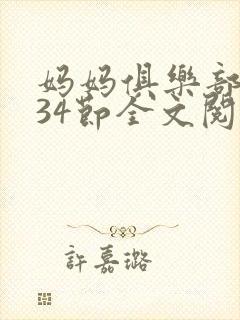 妈妈俱樂部
34節全文閱
許嘉璐